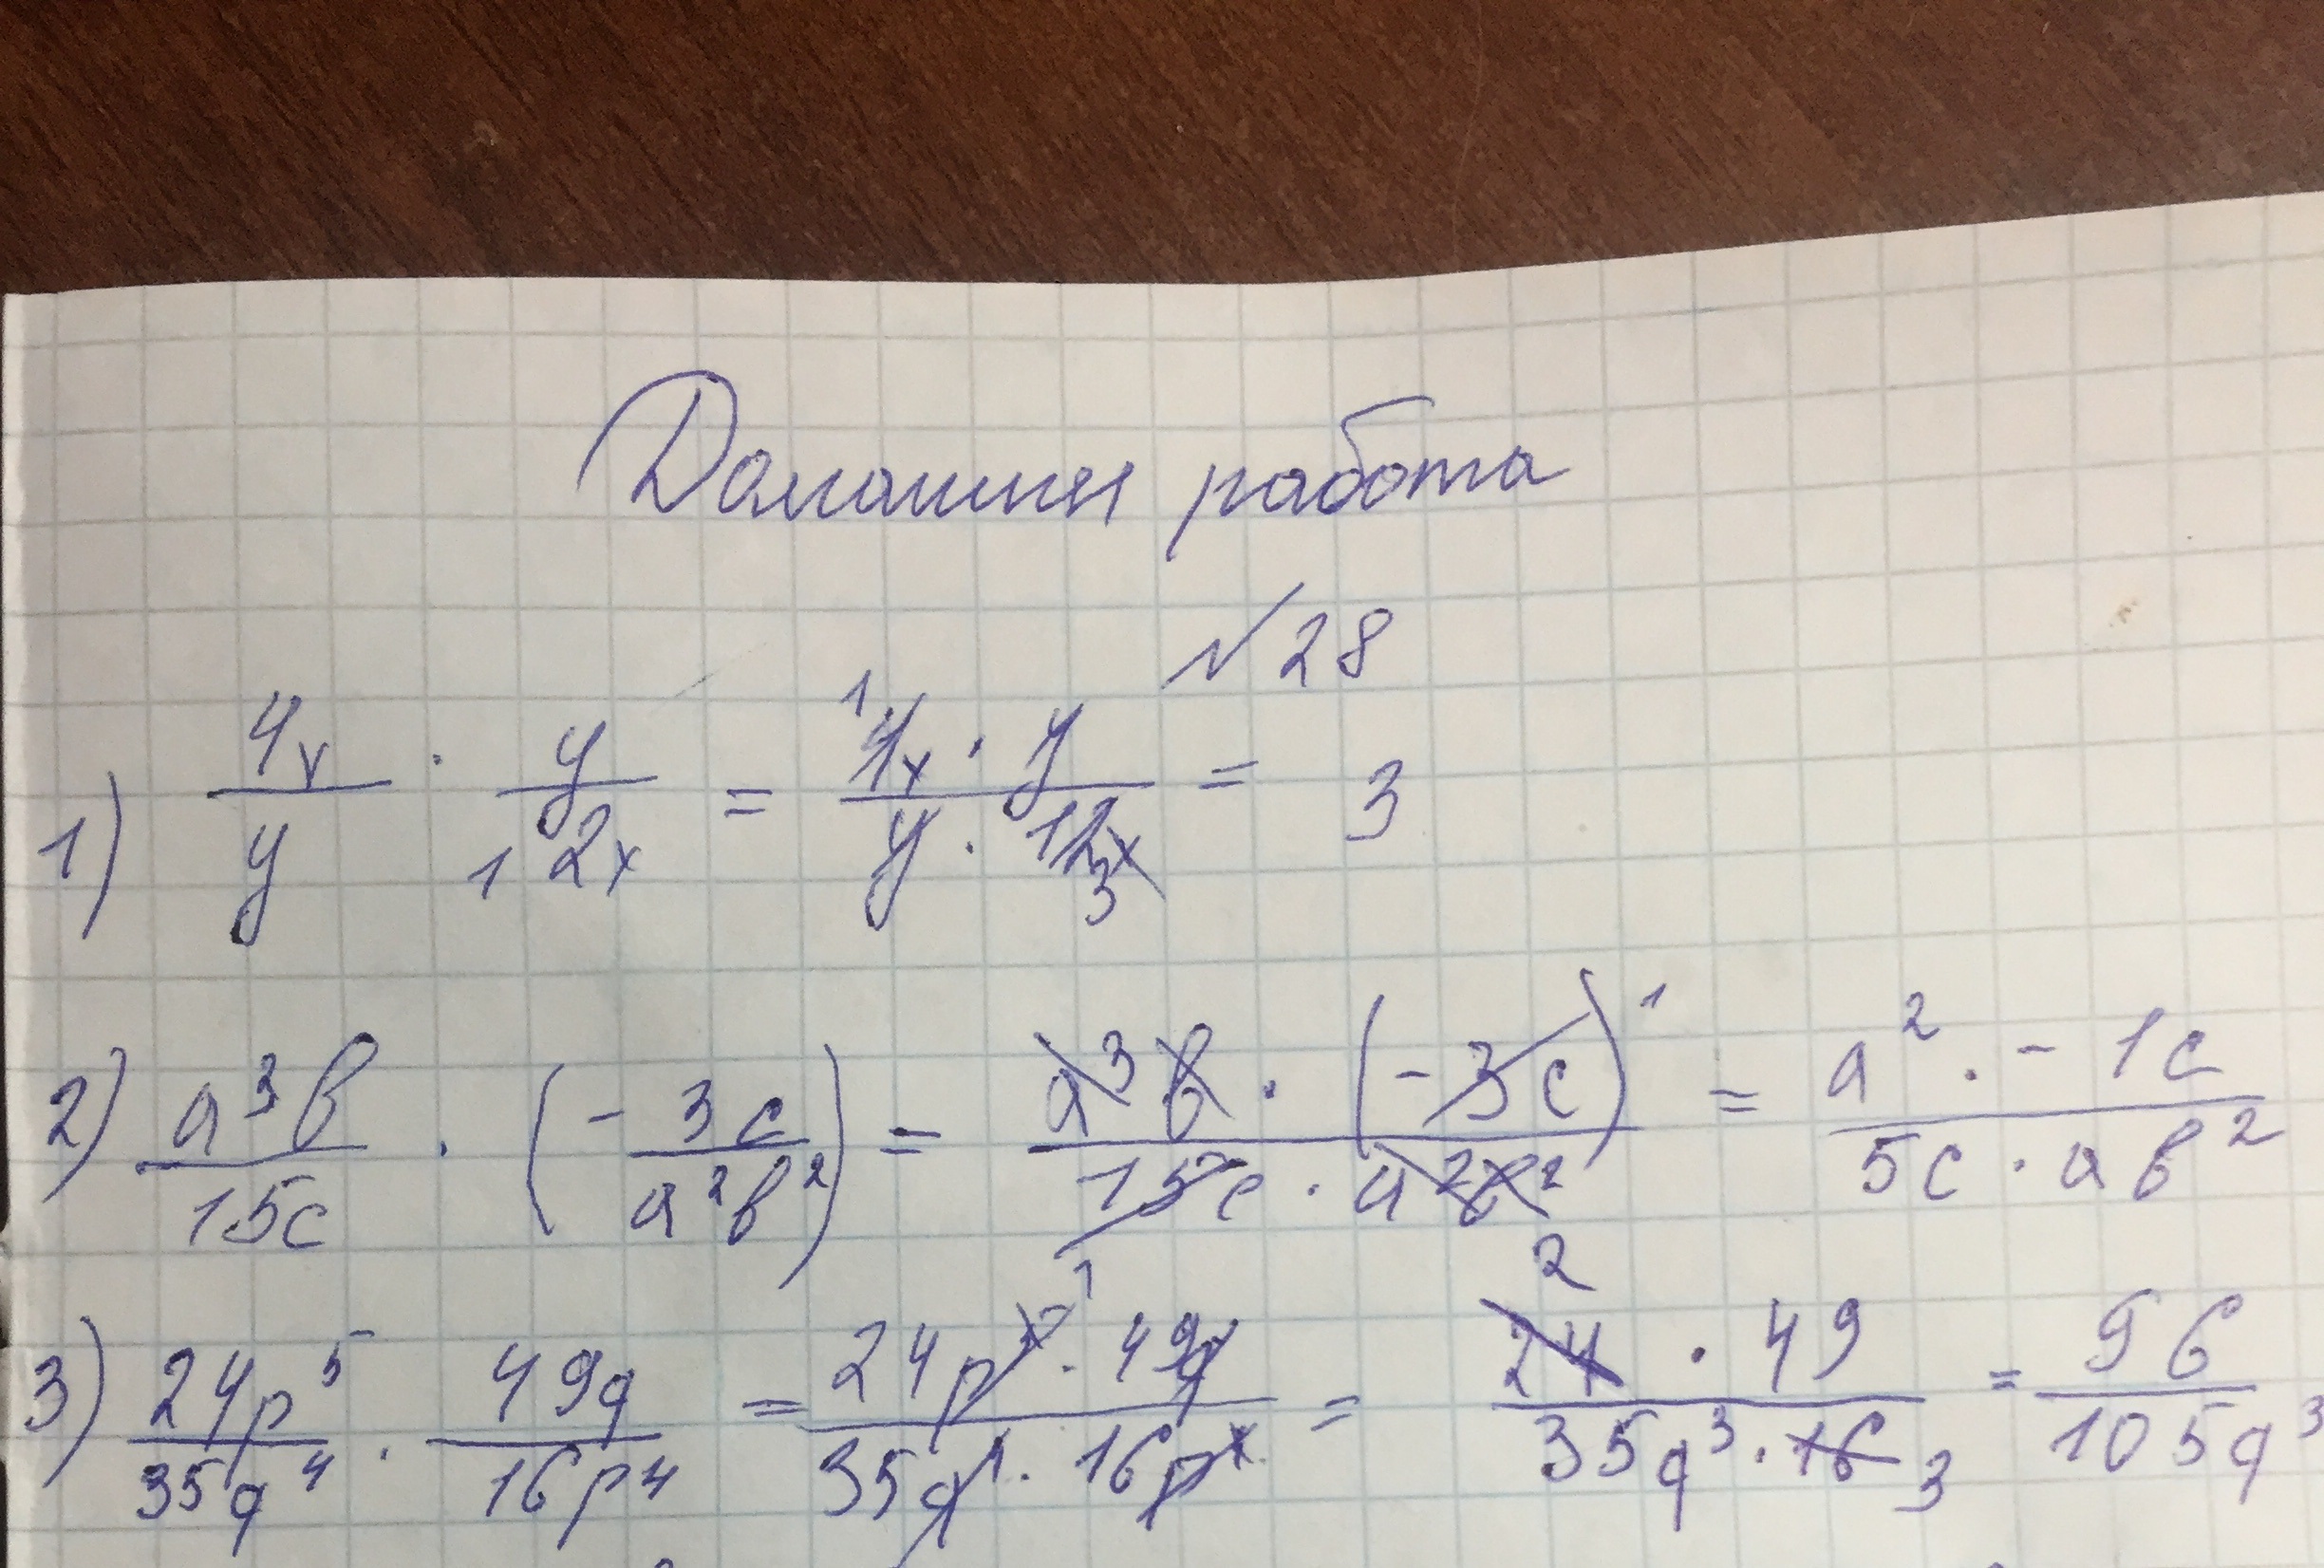 Домашняя работа
№28
1) 4x/y · y/12x = 4x · y / y · 12x = 3
1
3
2) a³b/15c · (- 3c/a²b²) = a³b · (-3c) / 15c · a²b² = a² · - 1c / 5c · ab²
1
3) 24p⁵/35q⁴ · 49q/16p⁴ = 24p · 49q / 35q · 16p = 24 · 49 / 35q³ · 16 = 96/105q³
1
2
3